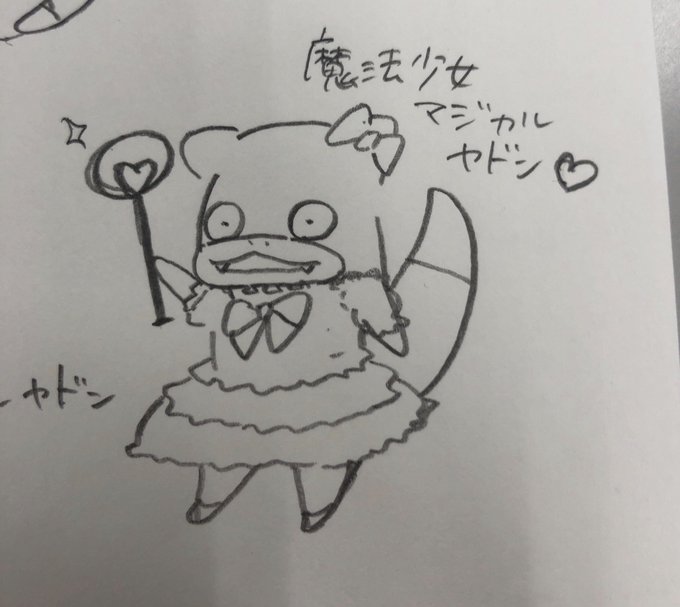 魔法少女
マジカル
ヤドン♡
ヤドン